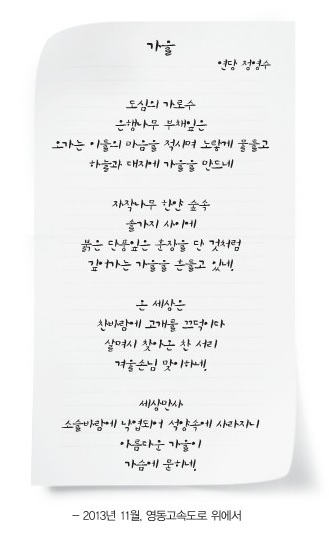 가을
연당 정영수
도심의 가로수
은행나무 부채잎은
오가는 이들의 마음을 적시며 노랗게 물들고
하늘과 대지에 가을을 만드네
자작나무 하얀 숲속
솔가지 사이에
붉은 단풍잎은 훈장을 단 것처럼
깊어가는 가을을 흔들고 있네.
온 세상은
찬바람에 고개를 끄덕이다
살며시 찾아온 찬 서리
겨울손님 맞이하네.
세상만사
소슬바람에 낙엽되어 석양속에 사라지니
아름다운 가을이
가슴에 묻히네.
- 2013년 11월, 영동고속도로 위에서